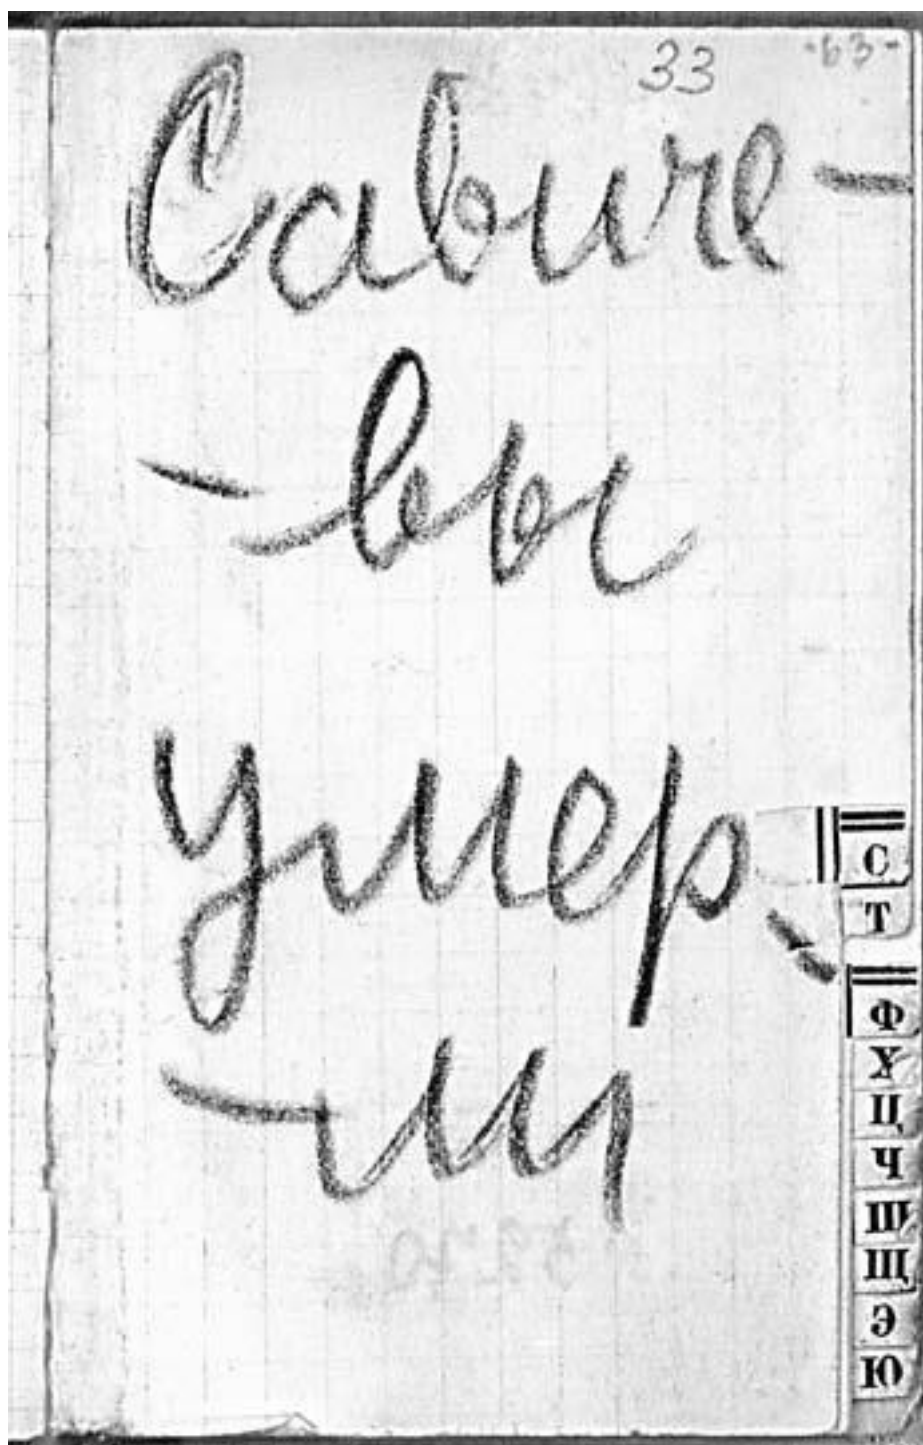 33
-63-
Савиче-
-вы
умер-
-ли
С
Т
Ф
Х
Ц
Ч
Ш
Щ
Э
Ю